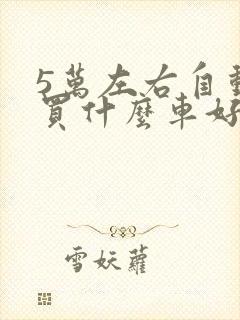 5萬左右自動
買什麼車好
雪妖蘿